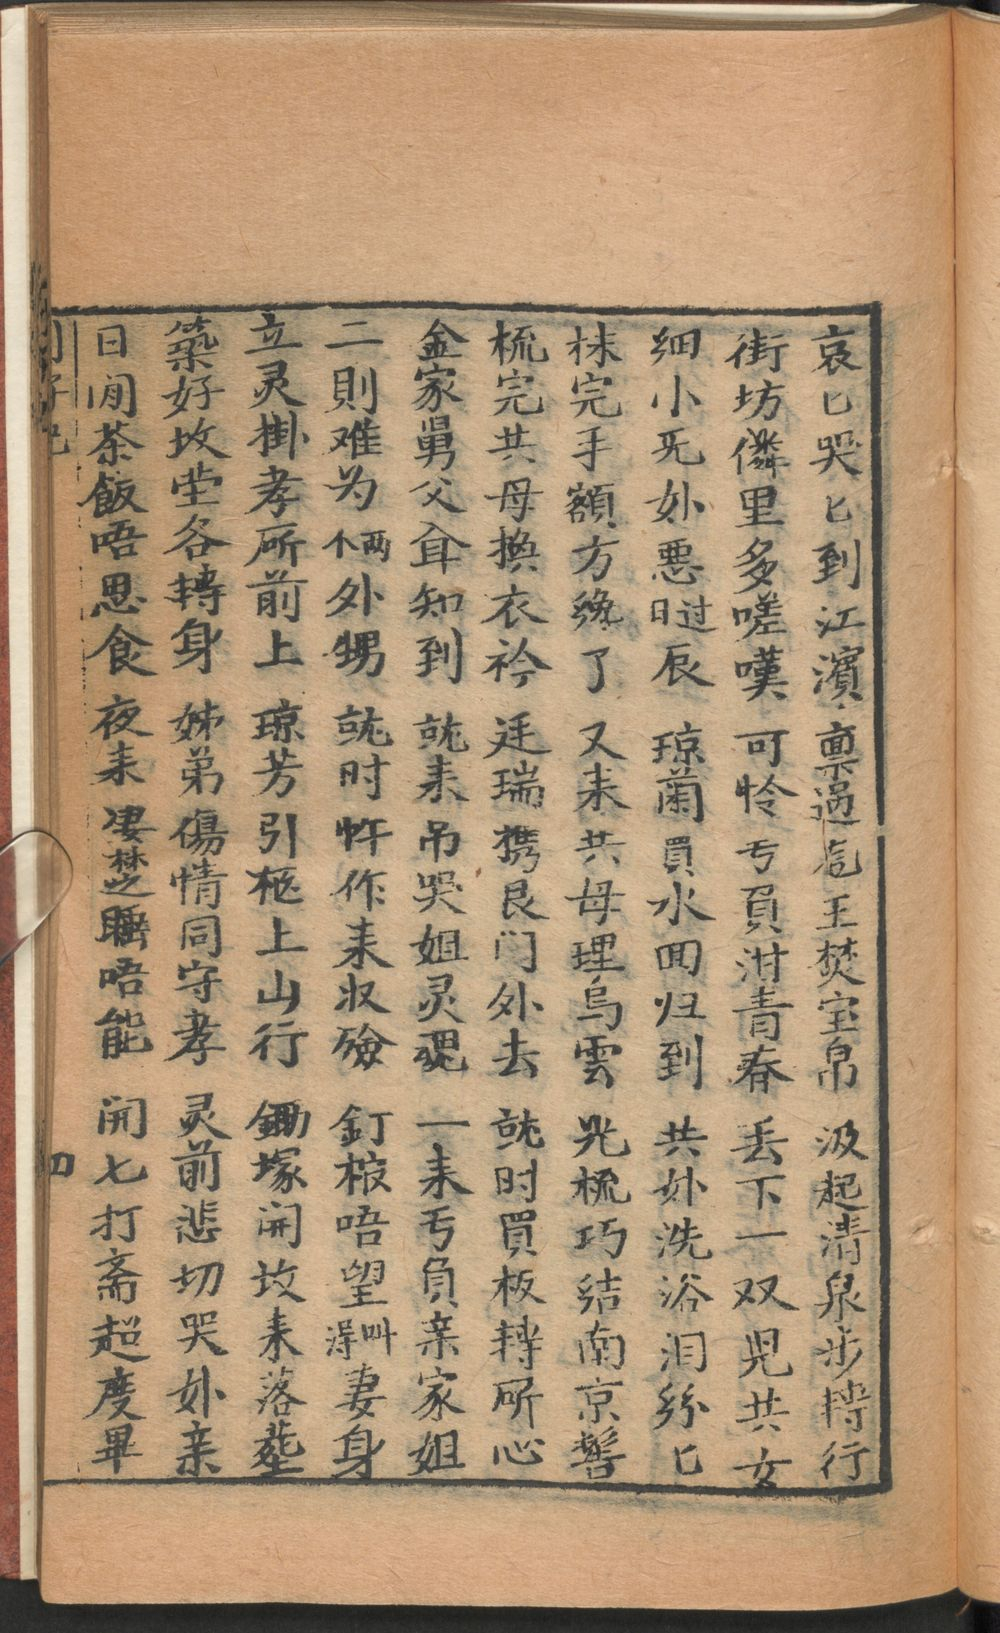 哀匕哭匕到江濱 禀過虎王焚宝帛 汲起清泉步轉行
街坊儕里多嗟嘆 可怜亏負泔青春 丢下一双児共女
細小旡妳悪过日辰 琼蘭買水囬归到 共妳洗浴泪纷匕
抹完手額方纔了 又耒共母理烏雲 光梳巧结南京髻
梳完共母換衣衿 廷瑞携艮门外去 就时買板轉所心
金家舅父耷知到 就耒吊哭姐灵魂 一耒亏負亲家姐
二則难为两个外甥 就时忤作耒収殮 釘板唔望叫得妻身
立灵掛孝所前上 琼芳引柩上山行 鋤塚開坟耒落塟
築好坟堂各轉身 姊弟傷情同守孝 灵前悲切哭妳亲
日间茶飯唔思食 夜耒凄楚睡唔能 開七打斋超度畢
四